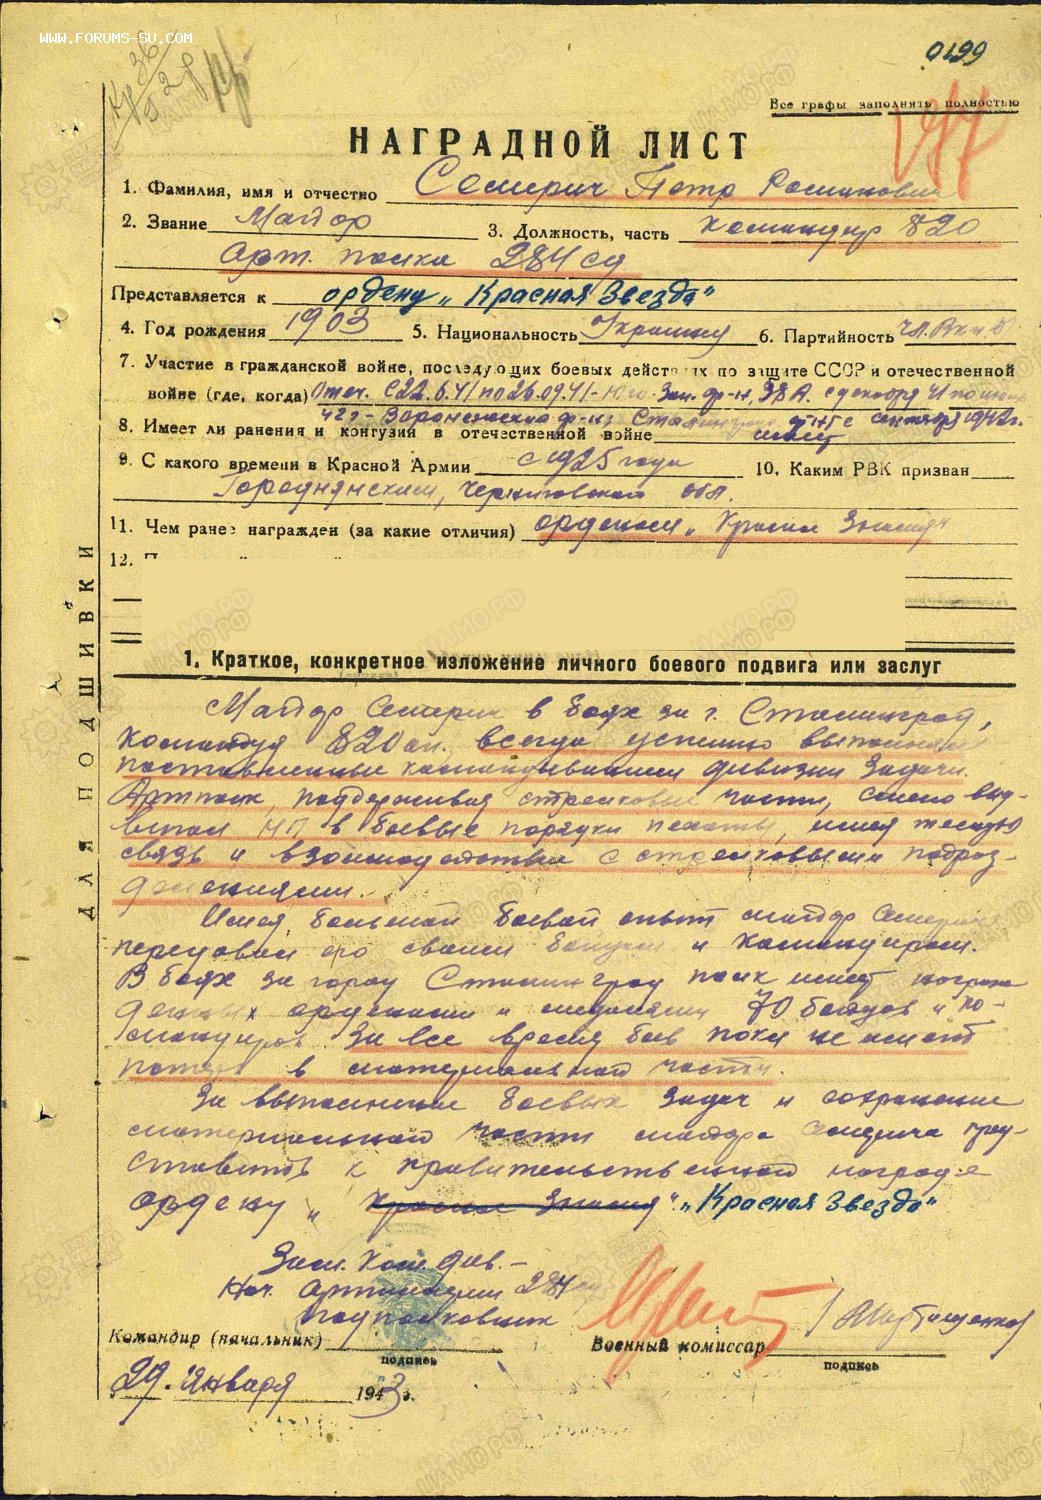 WWW.FORUMS-SU.COM
0199
Все графы заполнять полностью
НАГРАДНОЙ ЛИСТ
1. Фамилия, имя и отчество Семерич Петр
2. Звание Майор 3. Должность, часть командир 820
Арт. полка 284 сд
Представляется к ордену „Красная Звезда"
4. Год рождения 1903 5. Национальность Украинец 6. Партийность чл. ВКП(б)
7. Участие в гражданской войне, последующих боевых действиях по защите СССР и отечественной
войне (где, когда) Отеч. с 22.6.41 по 26.09.41 - Юго-Зап. фр-н, с декабря 41 по
42 г. - Воронежский фр-н, с сентября 1942 г.
8. Имеет ли ранения и контузии в отечественной войне
9. С какого времени в Красной Армии с 1925 года 10. Каким РВК призван
Городнянским, Черниговской обл.
11. Чем ранее награжден (за какие отличия) орденом „Красное Знамя"
12.
ДЛЯ ПОДШИВКИ
1. Краткое, конкретное изложение личного боевого подвига или заслуг
Майор Семерич в боях за г. Сталинград,
командуя 820 ап. всегда успешно выполнял
поставленные командованием дивизии задачи.
Артполк, поддерживая стрелковые части, смело выд-
вигал НП в боевые порядки пехоты, имея тесную
связь и взаимодействие с стрелковыми подраз-
делениями.
Имея большой боевой опыт майор Семерич
передавал его своим бойцам и командирам.
В боях за город Сталинград полк имеет награж
денных орденами и медалями 70 бойцов и ко-
мандиров. За все время боев полк не имеет
потерь в материальной части.
За выполнение боевых задач и сохранение
материальной части майора Семерича пред-
ставить к правительственной награде
ордену „Красное Знамя" „Красная Звезда"
Зам. Ком. див. -
Нач. Артиллерии 284 сд
подполковник
Командир (начальник) Военный комиссар
подпись подпись
29. Января 1943 г.